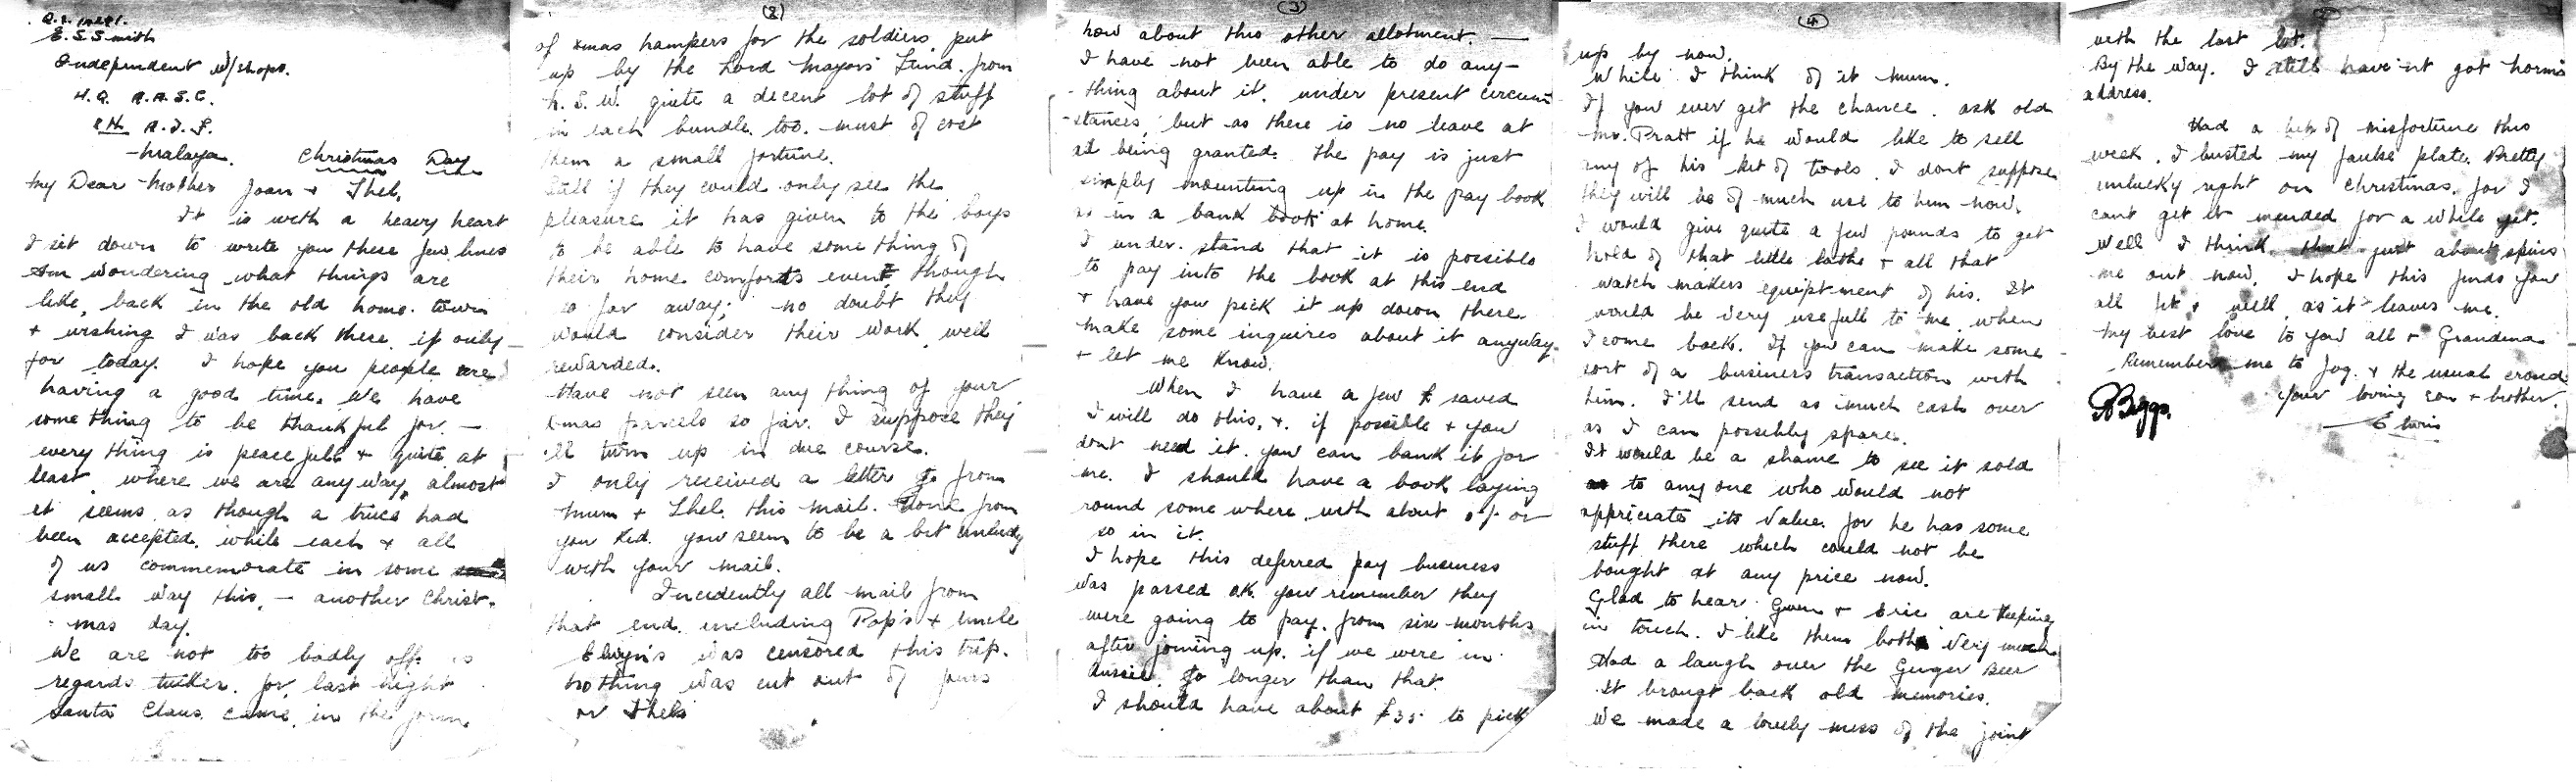 E. S. Smith
Independent W/shops.
H.Q. A.A.S.C.
8th A.I.F.
Malaya. Christmas Day
My Dear Mother Joan + Thel,
It is with a heavy heart
I sit down to write you these few lines
Am wondering what things are
like, back in the old home. town
+ wishing I was back there, if only
for today. I hope you people are
having a good time. We have
some thing to be thankful for. —
every thing is peacefull + quite at
least, where we are any way, almost
it seems as though a truce had
been accepted. while each + all
of us commemorate in some
small way this, — another Christ-
mas day.
We are not too badly off as
regards tucker. for last night
Santa Claus. came. in the form
(2)
of xmas hampers for the soldiers put
up by the Lord Mayors Fund. from
N. S. W. quite a decent lot of stuff
in each bundle too. must of cost
them a small fortune.
Still if they could only see the
pleasure it has given to the boys
to be able to have some thing of
their home comforts even though
so far away; no doubt they
would consider their work well
rewarded.
Have not seen any thing of your
Xmas parcels so far. I suppose they
ll turn up in due course.
I only received a letter from
Mum + Thel. this mail. None from
you Kid. you seem to be a bit unlucky
with your mail.
Incidently all mail from
that end. including Pop's + Uncle
Elwyn's was censored this trip.
Nothing was cut out of yours
or Thels
(3)
how about this other allotment. —
I have not been able to do any-
-thing about it. under present circum
-stances, but as there is no leave at
all being granted. the pay is just
simply mounting up in the pay book
as in a bank book at home.
I under. stand that it is possible
to pay into the book at this end
+ have you pick it up down there.
make some inquires about it anyway.
+ let me know.
When I have a few £ saved
I will do this, +. if possible + you
dont need it. you can bank it for
me. I should have a book laying
round some where. with about or
so in it.
I hope this deferred pay business
was passed O.K. you remember they
were going to pay. from six months
after joining up. if we were in
Aussie. longer than that.
I should have about £35 to pick
(4)
up by now.
While I think of it Mum.
If you ever get the chance. ask old
Mr. Pratt if he would like to sell
any of his kit of tools. I dont suppose
they will be of much use to him now.
I would give quite a few pounds to get
hold of that little lathe + all that
watch makers equiptment of his. It
would be very usefull to me when
I come back. If you can make some
sort of a business transaction with
him. I'll send as much cash over
as I can possibly spare.
It would be a shame to see it sold
to any one who would not
appriciate its value. for he has some
stuff there which could not be
bought at any price now.
Glad to hear Gwen + Eric are keeping
in touch. I like them both very much
Had a laugh over the Ginger Beer
It brougt back old memories.
We made a lovely mess of the joint
with the last lot.
By the way. I still have'nt got Norm's
address.
Had a bit of misfortune this
week. I busted my faulse plate. Pretty
unlucky right on Christmas. for I
cant get it mended for a while yet.
Well I think that just about spins
me out now. I hope this finds you
all fit + well as it leaves me.
My best love to you all + Grandma
Remember me to Jog. + the usual crowd.
Your loving son + brother.